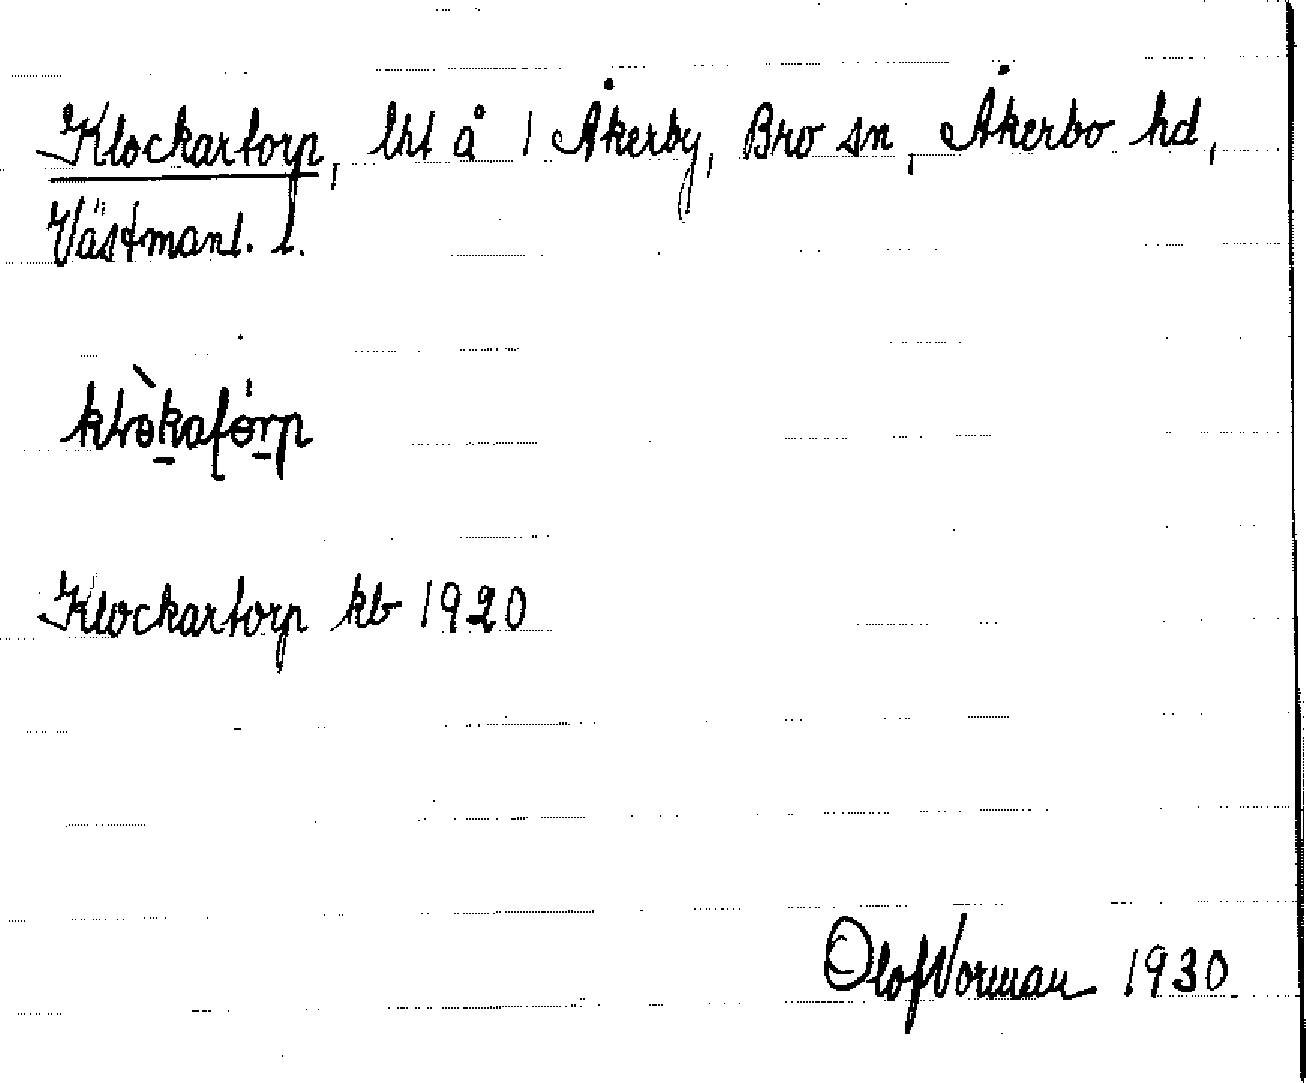 Klockartorp, lht å 1 Åkerby, Bro sn, Åkerbo hd,
Västmanl. l.
Klockartorp kb 1920
Olof Norman 1930